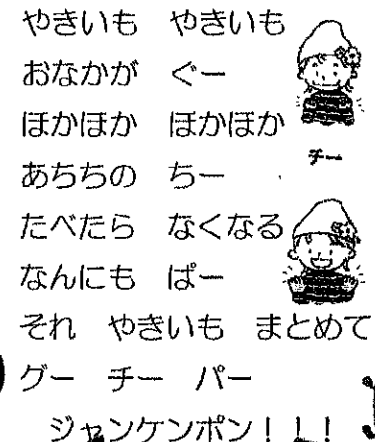 やきいも　やきいも
おなかが　ぐー
ほかほか　ほかほか
チー
あちちの　ちー
たべたら　なくなる
なんにも　ぱー
それ　やきいも　まとめて
グー　チー　パー
ジャンケンポン！！！